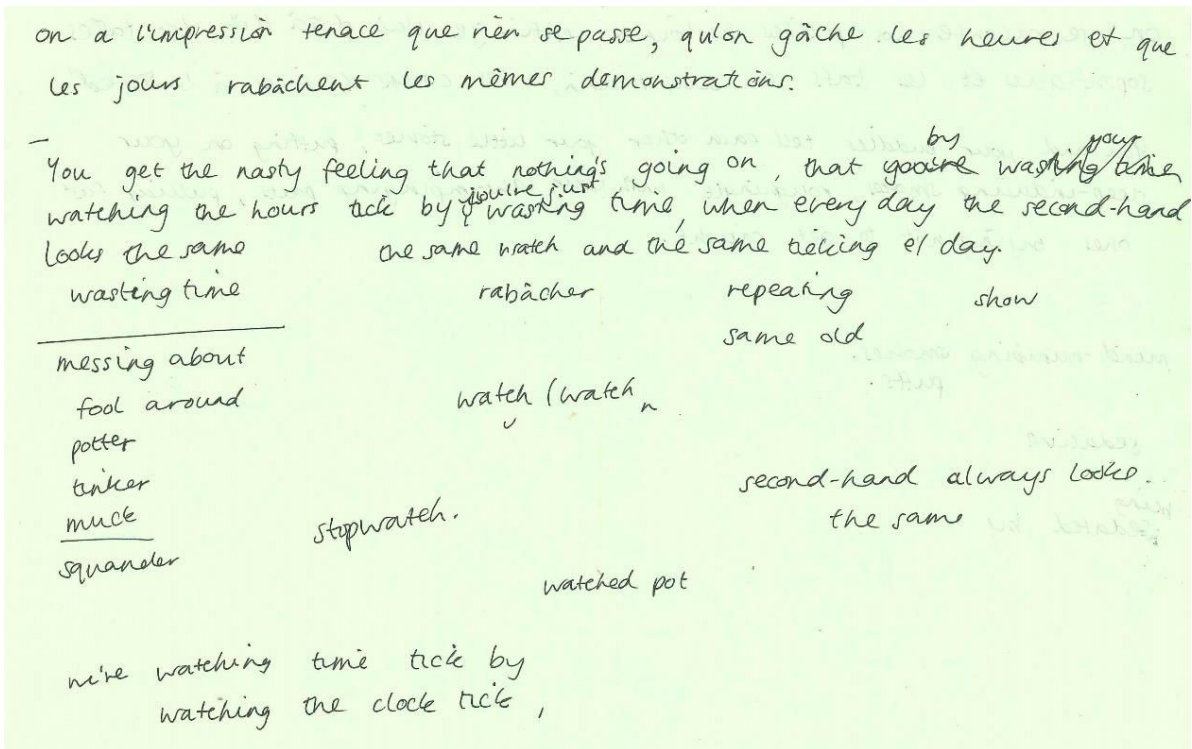 on a l'impression tenace que rien se passe, qu'on gâche les heures et que
les jours rabâchent les mêmes demonstrations.
by your
You get the nasty feeling that nothing's going on, that you're wasting time
you're just
watching the hours tick by wasting time, when every day the second-hand
looks the same the same watch and the same ticking e/ day.
wasting time rabâcher repeating show
same old
messing about
fool around watch (watch
potter
tinker
second-hand always looks
muck stopwatch. the same
squander
watched pot
we're watching time tick by
watching the clock tick,